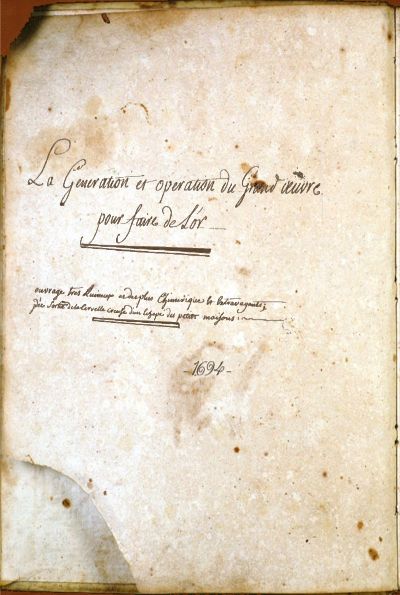 La Generation et operation du Grand œuvre
pour faire de L'or
ouvrage tres Curieux et des plus Chimerique et Extravagante,
Sortie de la Cervelle creuse d'un Echapé des petites maisons
-1694-